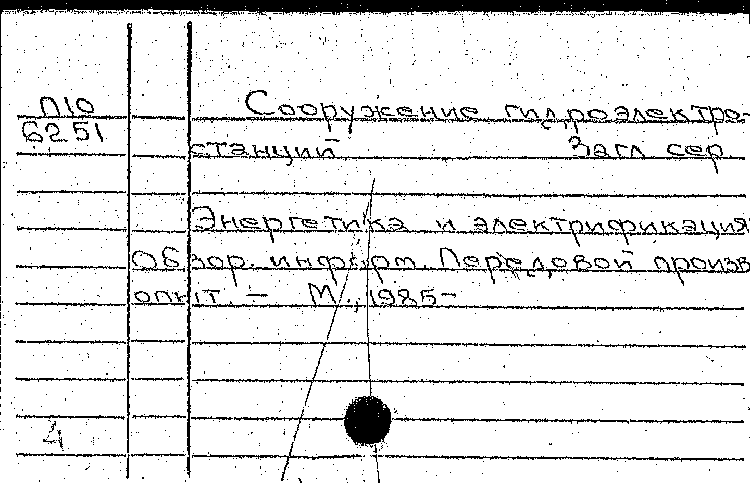 П10
6251
Сооружение гидроэлектро-
станций Загл сер
Энергетика и электрификация
Обзор. информ. Передовой произв
опыт. - М., 1985-
4